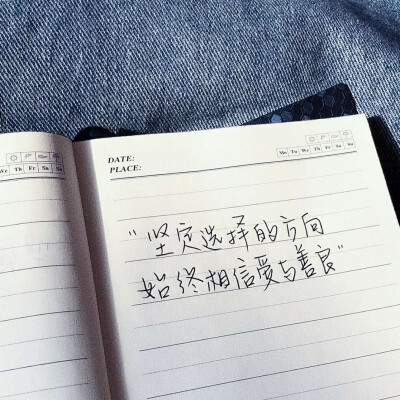 DATE:
PLACE:
Mo Tu We Th Fr Sa Su
We Th Fr Sa Su
"坚定选择的方向
始终相信爱与善良"